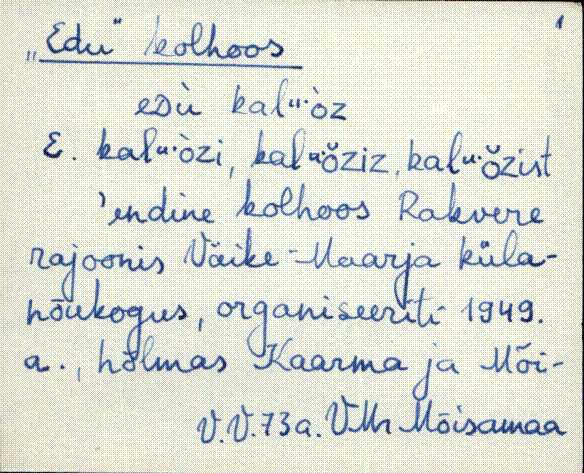 1
„Edu“ kolhoos
eᴅù kalᵘ·òz
E. kalᵘ·òzi, kalᵘ·ǒziz, kalᵘ·ǒzist
'endine kolhoos Rakvere
rajoonis Väike-Maarja küla-
nõukogus, organiseeriti 1949.
a., hõlmas Kaarma ja Mõi-
V.V.73a. VMr Mõisamaa